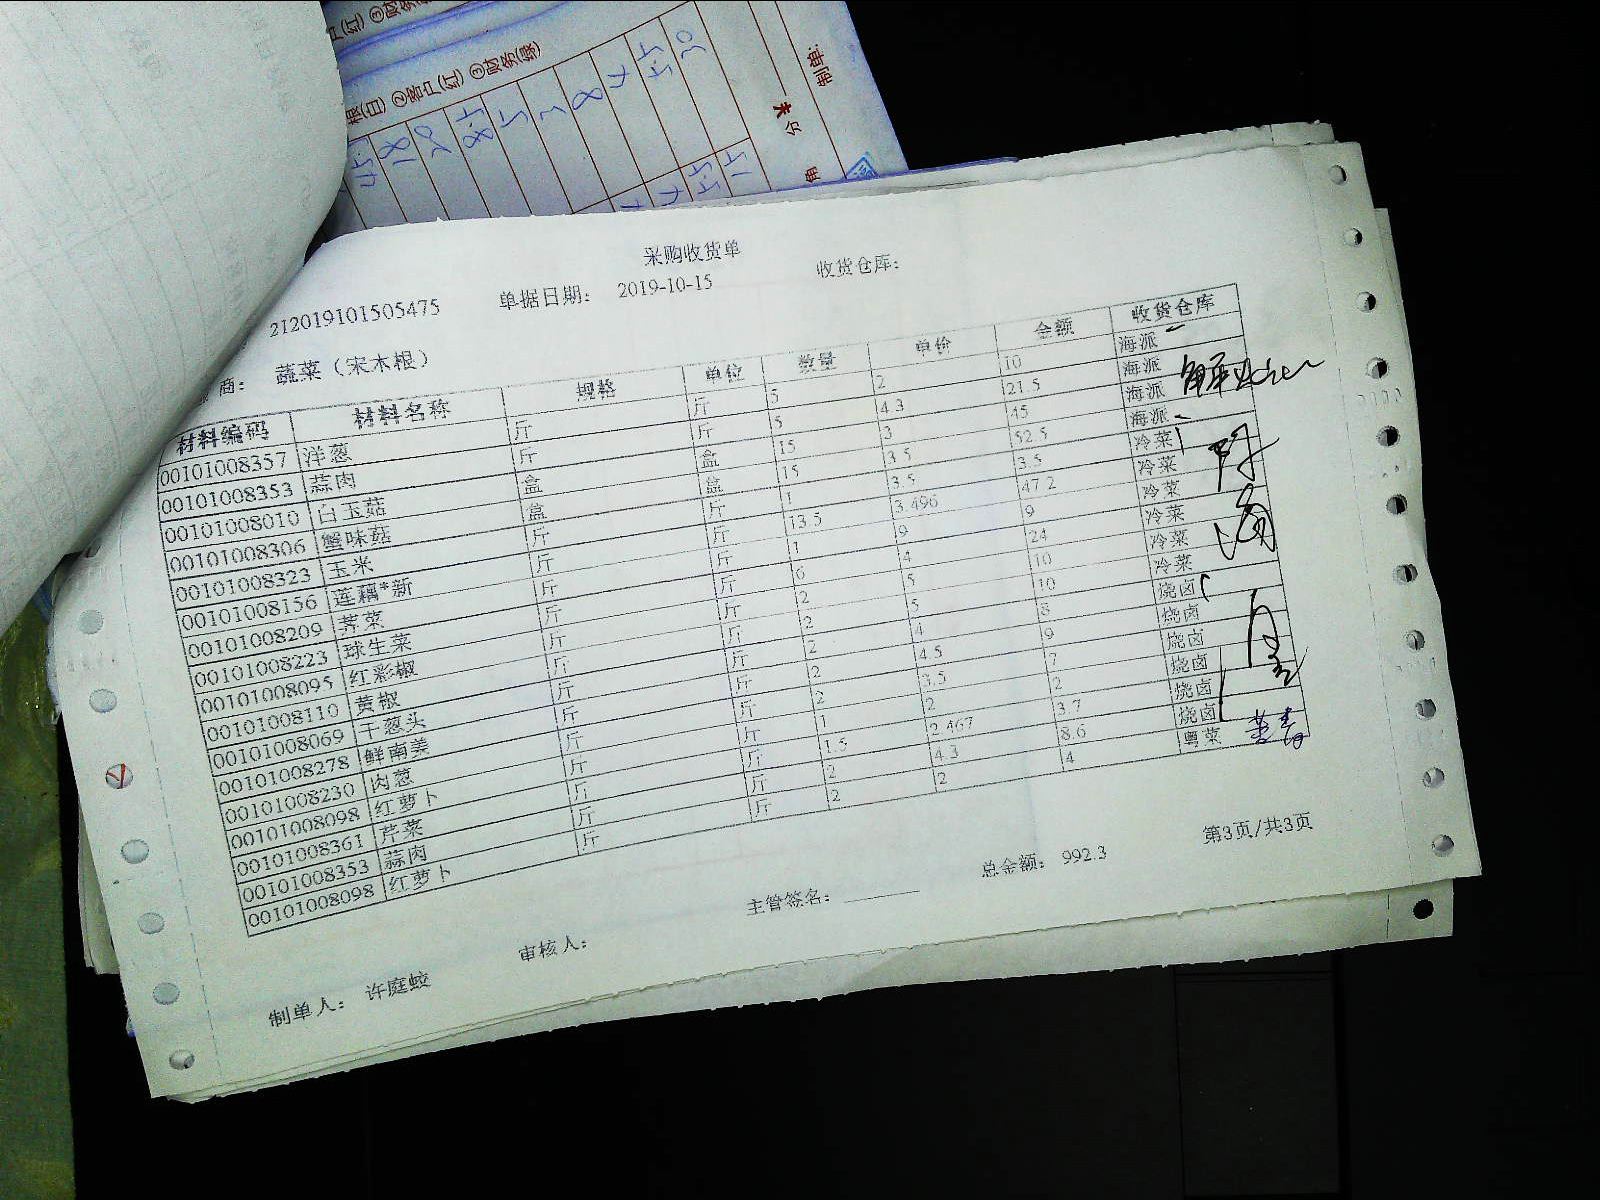 根(白) ②客户(红) ③财务(绿)
分
角
制单:
采购收货单
212019101505475 单据日期: 2019-10-15 收货仓库:
商: 蔬菜（宋木根）
材料编码 材料名称 规格 单位 数量 单价 金额 收货仓库
00101008357 洋葱 斤 斤 5 2 10 海派
00101008353 蒜肉 斤 斤 5 4.3 21.5 海派
00101008010 白玉菇 盒 盒 15 3 45 海派
00101008306 蟹味菇 盒 盒 15 3.5 52.5 海派
00101008323 玉米 斤 斤 1 3.5 3.5 冷菜
00101008156 莲藕*新 斤 斤 13.5 3.496 47.2 冷菜
00101008209 荠菜 斤 斤 1 9 9 冷菜
00101008223 球生菜 斤 斤 6 4 24 冷菜
00101008095 红彩椒 斤 斤 2 5 10 冷菜
00101008110 黄椒 斤 斤 2 5 10 冷菜
00101008069 干葱头 斤 斤 2 4 8 烧卤
00101008278 鲜南姜 斤 斤 2 4.5 9 烧卤
00101008230 肉葱 斤 斤 2 3.5 7 烧卤
00101008098 红萝卜 斤 斤 1 2 2 烧卤
00101008361 芹菜 斤 斤 1.5 2.467 3.7 烧卤
00101008353 蒜肉 斤 斤 2 4.3 8.6 烧卤
00101008098 红萝卜 斤 斤 2 2 4 粤菜
第3页/共3页
主管签名: 总金额: 992.3
制单人: 许庭蛟 审核人: